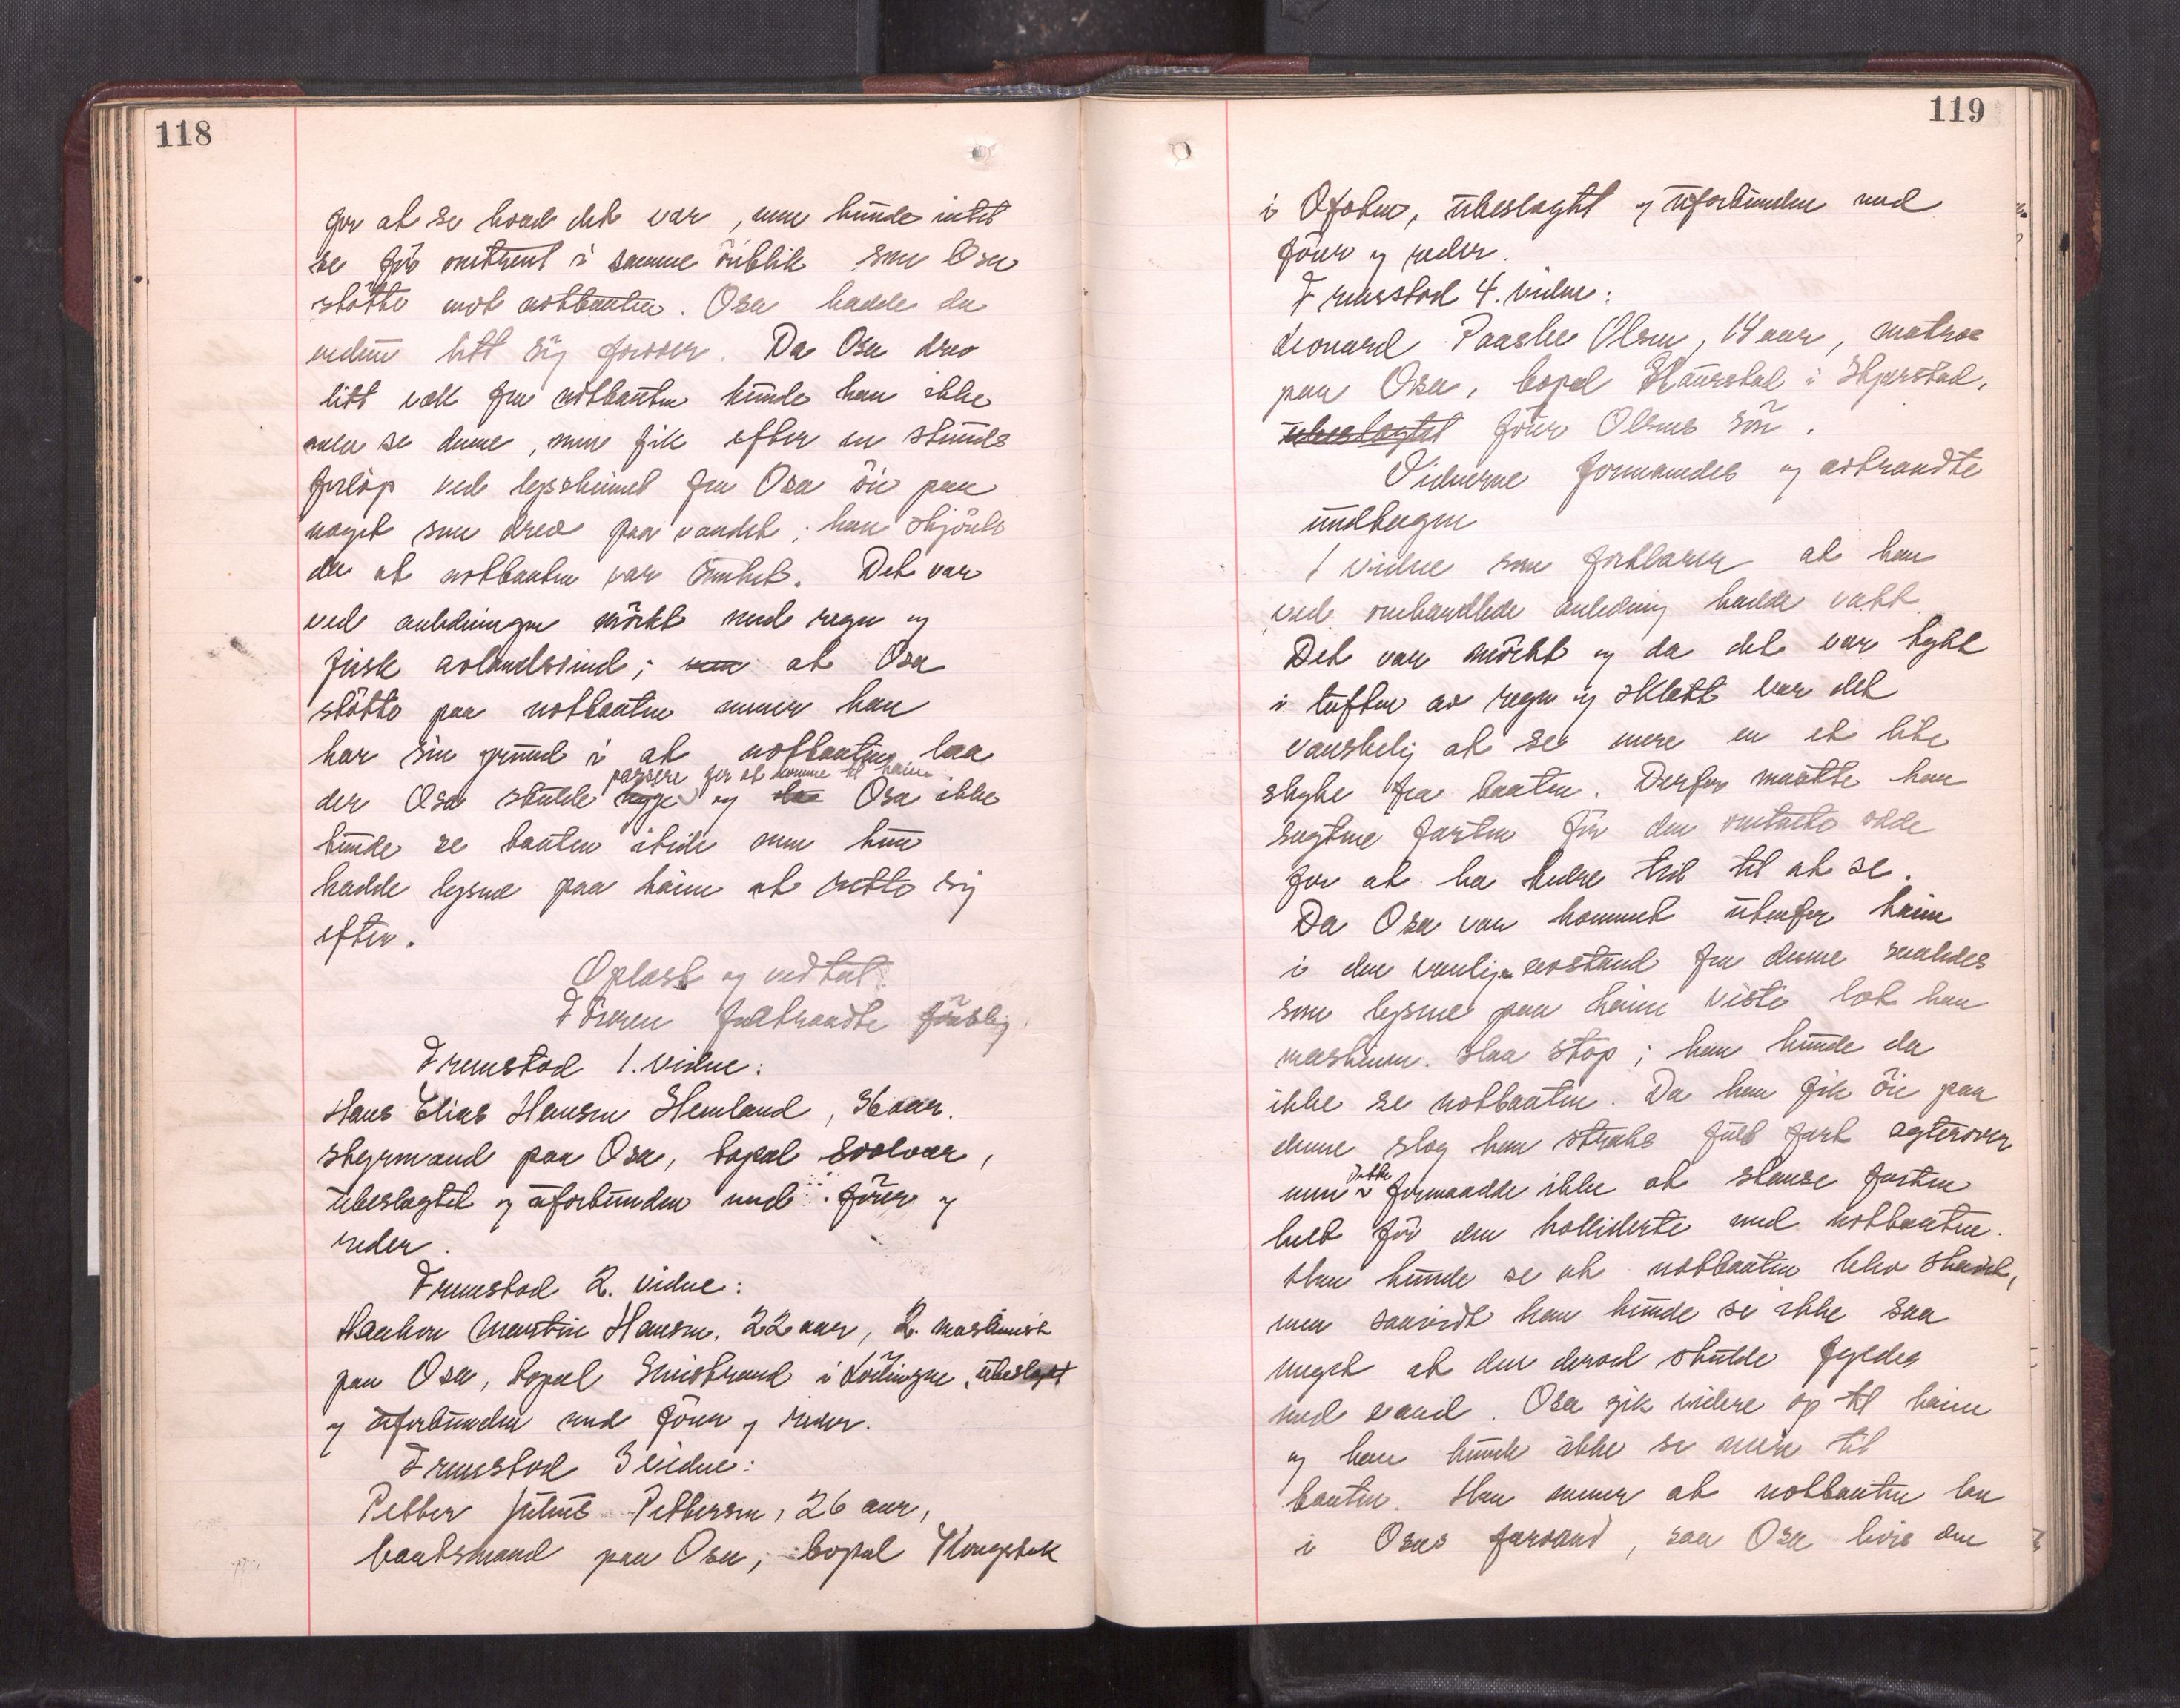 118
for at se hvad det var, men kunde intet
se før omtrent i samme øieblik som Osa
støtte mot notbaaten. Osa hadde da
endnu litt sig forover. Da Osa drev
litt væk fra notbaaten kunde han ikke
mer se denne, men fik efter en stunds
forløp ved lysskinnet fra Osa øie paa
noget som drev paa vandet; han skjønte
da at notbaaten var sunket. Det var
ved anledningen mørkt med regn og
frisk avlandsvind; men at Osa
støtte paa notbaaten mener han
har sin grund i at notbaaten laa
passere for at komme til kaien
der Osa skulde ligge og da Osa ikke
kunde se baaten itide men kun
hadde lysene paa kaien at rette sig
efter.
Oplæst og vedtat.
Føreren fratraadte
Fremstod 1. vidne:
Hans Elias Hansen Hemland, 36 aar.
styrmand paa Osa, bopæl Svolvær,
ubeslegtet og uforbunden med fører og
reder.
Fremstod 2. vidne:
Haakon Martin Hansen, 22 aar, 2. maskinist
paa Osa, bopæl i Lødingen, ubeslegtet
og uforbunden med fører og reder.
Fremstod 3 vidne:
Petter Julius Pettersen, 26 aar,
baatsmand paa Osa, bopæl
119
i Ofoten, ubeslægtet og uforbunden med
fører og reder.
Fremstod 4. vidne:
Leonard Paaske Olsen, 14 aar, matros
paa Osa, bopæl i Skjerstad,
ubeslegtet fører Olsens søn.
Vidnerne formanedes og avtraadte
undtagen
1 vidne som forklarer at han
ved omhandlede anledning hadde vakt.
Det var mørkt og da det var tykt
i luften av regn og sklett var det
vanskelig at se mere en et lite
stykke fra baaten. Derfor maatte han
sagtne farten før den omtalte odde
for at ha bedre tid til at se.
Da Osa var kommet utenfor kaien
i den vanlige avstand fra denne saaledes
som lysene paa kaien viste lot han
maskinen slaa stop; han kunde da
ikke se notbaaten. Da han fik øie paa
denne slog han straks fuld fart agterover
dette
men formaadde ikke at stanse farten
helt før den kolliderte med notbaaten.
Han kunde se at notbaaten blev skadet,
men saavidt han kunde se ikke saa
meget at den derved skulde fyldes
med vand. Osa gik videre op til kaien
og han kunde ikke se mere til
baaten. Han mener at notbaaten laa
i Osas farvand, saa Osa hvis den